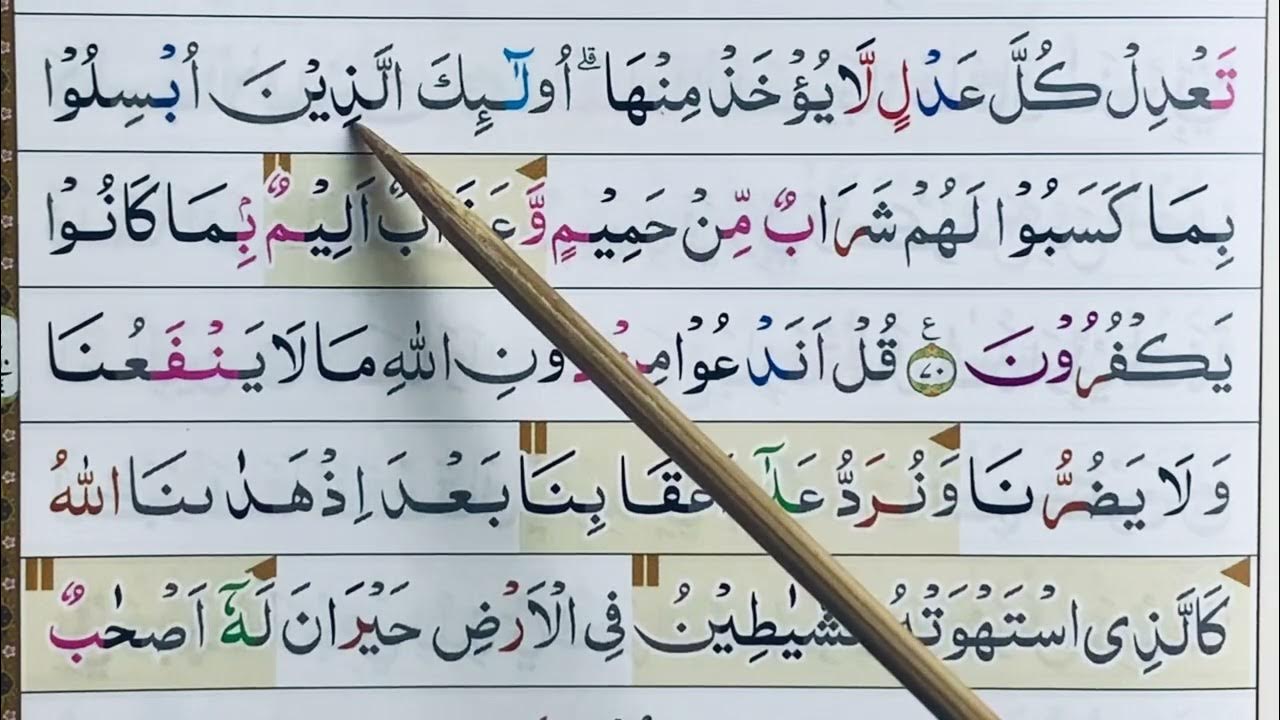 تَعْدِلْ كُلَّ عَدْلٍ لَّا يُؤْخَذْ مِنْهَا ۗ اُولٰٓئِكَ الَّذِيْنَ اُبْسِلُوْا
بِمَا كَسَبُوْا لَهُمْ شَرَابٌ مِّنْ حَمِيْمٍ وَّعَذَابٌ اَلِيْمٌۢ بِمَا كَانُوْا
يَكْفُرُوْنَ ﴿۷۰﴾ ع قُلْ اَنَدْعُوْا مِنْ دُوْنِ اللّٰهِ مَا لَا يَنْفَعُنَا
وَلَا يَضُرُّنَا وَنُرَدُّ عَلٰٓى اَعْقَابِنَا بَعْدَ اِذْ هَدٰىنَا اللّٰهُ
كَالَّذِى اسْتَهْوَتْهُ الشَّيٰطِيْنُ فِى الْاَرْضِ حَيْرَانَ لَهٗٓ اَصْحٰبٌ